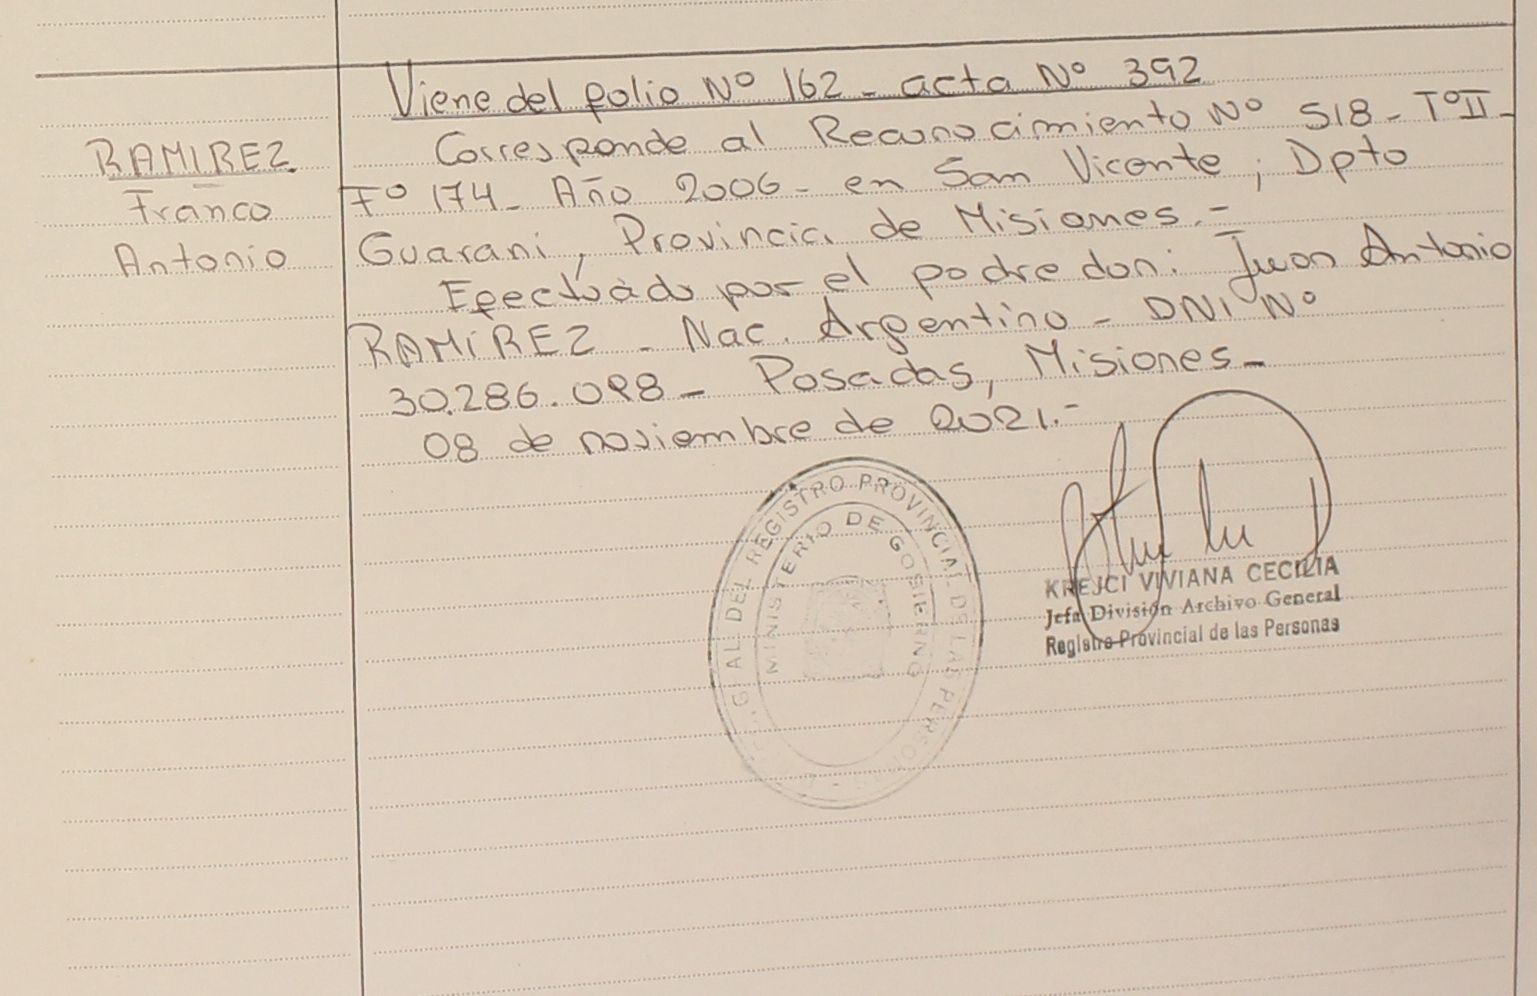 Viene del folio Nº 162 - acta Nº 392
RAMIREZ
Franco
Antonio
Corresponde al Reconocimiento Nº 518 - TºII -
Fº 174 - Año 2006 - en San Vicente, Dpto
Guarani, Provincia de Misiones.-
Efectuado por el padre don: Juan Antonio
RAMÍREZ - Nac. Argentino - DNI Nº
30.286.098 - Posadas, Misiones -
08 de noviembre de 2021.-
AL DEL REGISTRO PROVINCIAL DE LAS PERSONAS
MINISTERIO DE GOBIERNO
KREJCI VIVIANA CECILIA
Jefa División Archivo General
Registro Provincial de las Personas